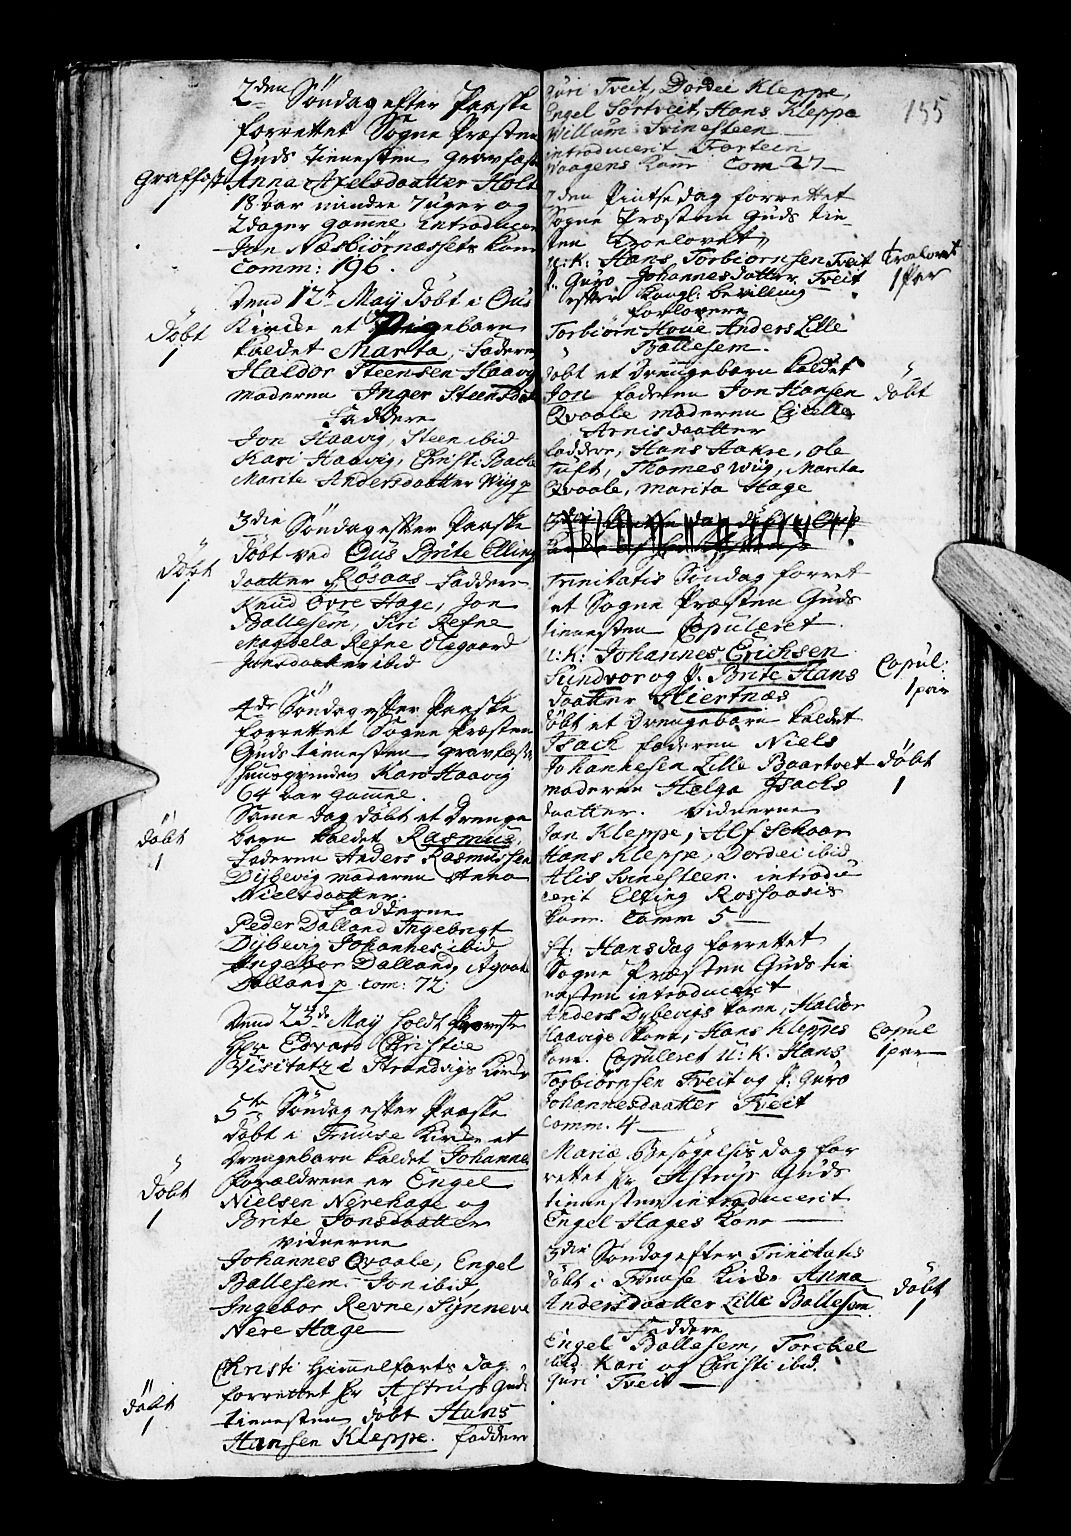 2den Søndag efter Paaske
forrettet Sogne Præsten
Guds tienesten gravfæst
Graffæst
Anna Axelsdaatter Holt
18 aar mindre 7 uger og
2 dager gamle introducer
Jon Næsbiørnæssets kone
Comm: 196.
Dend 12te May døbt i Ous
Kircke et Pigebarn
døbt
1
kaldet Marta, Faderen
Haldor Steensen Haavig
moderen Inger Steensdat
Faddere
Jon Haavig, Steen ibid
Kari Haavig, Christi Bache
Marite Andersdaatter Wiig p
3die Søndag efter Paaske
døbt ved Ous Brite Elling
døbt
1
daatter Røsaas Faddere
Knud Øvre Hage, Jon
Ballesem, Siri Refne
Magdela Refne Olegaard
Jonsdaatter ibid
4de Søndag efter Paaske
forrettet Sogne Præsten
Guds tienesten gravfæste
huusqvinden Kari Haavig
64 aar gamel.
Same dag døbt et Drenge
døbt
1
barn kaldet Rasmus,
Faderen Anders Rasmussen
Dybevig moderen Anna
Nielsdaatter
Fadderne
Peder Dalland Ingebrigt
Dybevig Johannes ibid
Ingebor Dalland, Agaata
Dalland p com: 72
Dend 23de May holdt Provste
Hr Edvard Christie
Visitatz i Strandvigs Kircke
5te Søndag efter Paaske
døbt i Fruuse Kircke et
Drengebarn kaldet Johannes
døbt
1
forældrene er Engel
Nielsen Nerehage og
Brite Jonsdaatter
vidnerne
Johannes Qvaale, Engel
Ballesem, Jon ibid,
Ingebor Revne, Synneve
Nere Hage
Christi Himmelfarts dag
forrettet Hr Astrup Guds
døbt
1
tienesten døbt Hans
Hansen Kleppe. Faddere
155
Guri Tveit, Dordei Kleppe,
Engel Sørtveit, Hans Kleppe
Willum Svinesteen
introducerit Torstein
Vaagens kone Com 27
2den Pintsedag forrettet
Sogne Præsten Guds tie-
sten Troelovet
U: K. Hans Torbiørnsen Tveit
trolovet
1 par
P. Guro Johannesdatter Tveit
efter Kongl: bevilling
forlovere
Torbiørn Houe Anders Lille
Ballesem.
døbt et Drengebarn kaldet
Jon faderen Jon Hansen
døbt
Qvaale moderen Cicelle
Arnisdaatter
faddere, Hans Aakre, Ole
Tuft, Thomes Wiig, Marita
Qvaale, Marita Hage
Trinitatis Søndag forret
et Sogne Præsten Guds
tienesten Copuleret
U: K: Johannes Erichsen
Copul:
1 par
Sundvor og P. Brite Hans
daatter Skiertnæs
døbt et Drengebarn kaldet
Isack faderen Niels
Johannesen Lille Baartvet
døbt
1
moderen Helga Isachs
daatter. Vidnerne
Jan Kleppe, Alf Schaar
Hans Kleppe, Dordei ibid
Alis Svinesteen. introdu
cerit Elling Rossaasis
kone. Comm 5
St: Hansdag forrettet
Sogne Præsten Guds tie
nesten introducerit
Anders Dybevigs kone, Haldor
Haavigs kone, Hans Kleppes
Copul
1 par
kone. Copuleret U: K. Hans
Torbiørnsen Tveit og P: Guro
Johannesdaatter Tveit
Comm. 4
Mariæ Besøgelsis dag for
rettet Hr Astrup Guds
tienesten introducerit
Engel Hages kone
3die Søndag efter Trinitatis
døbt i Fruuse Kircke Anna
døbt
1
Andersdaatter Lille Ballesem
Faddere
Engel Ballesem, Torckel
ibid Kari og Christi ibid
Guri Tveit